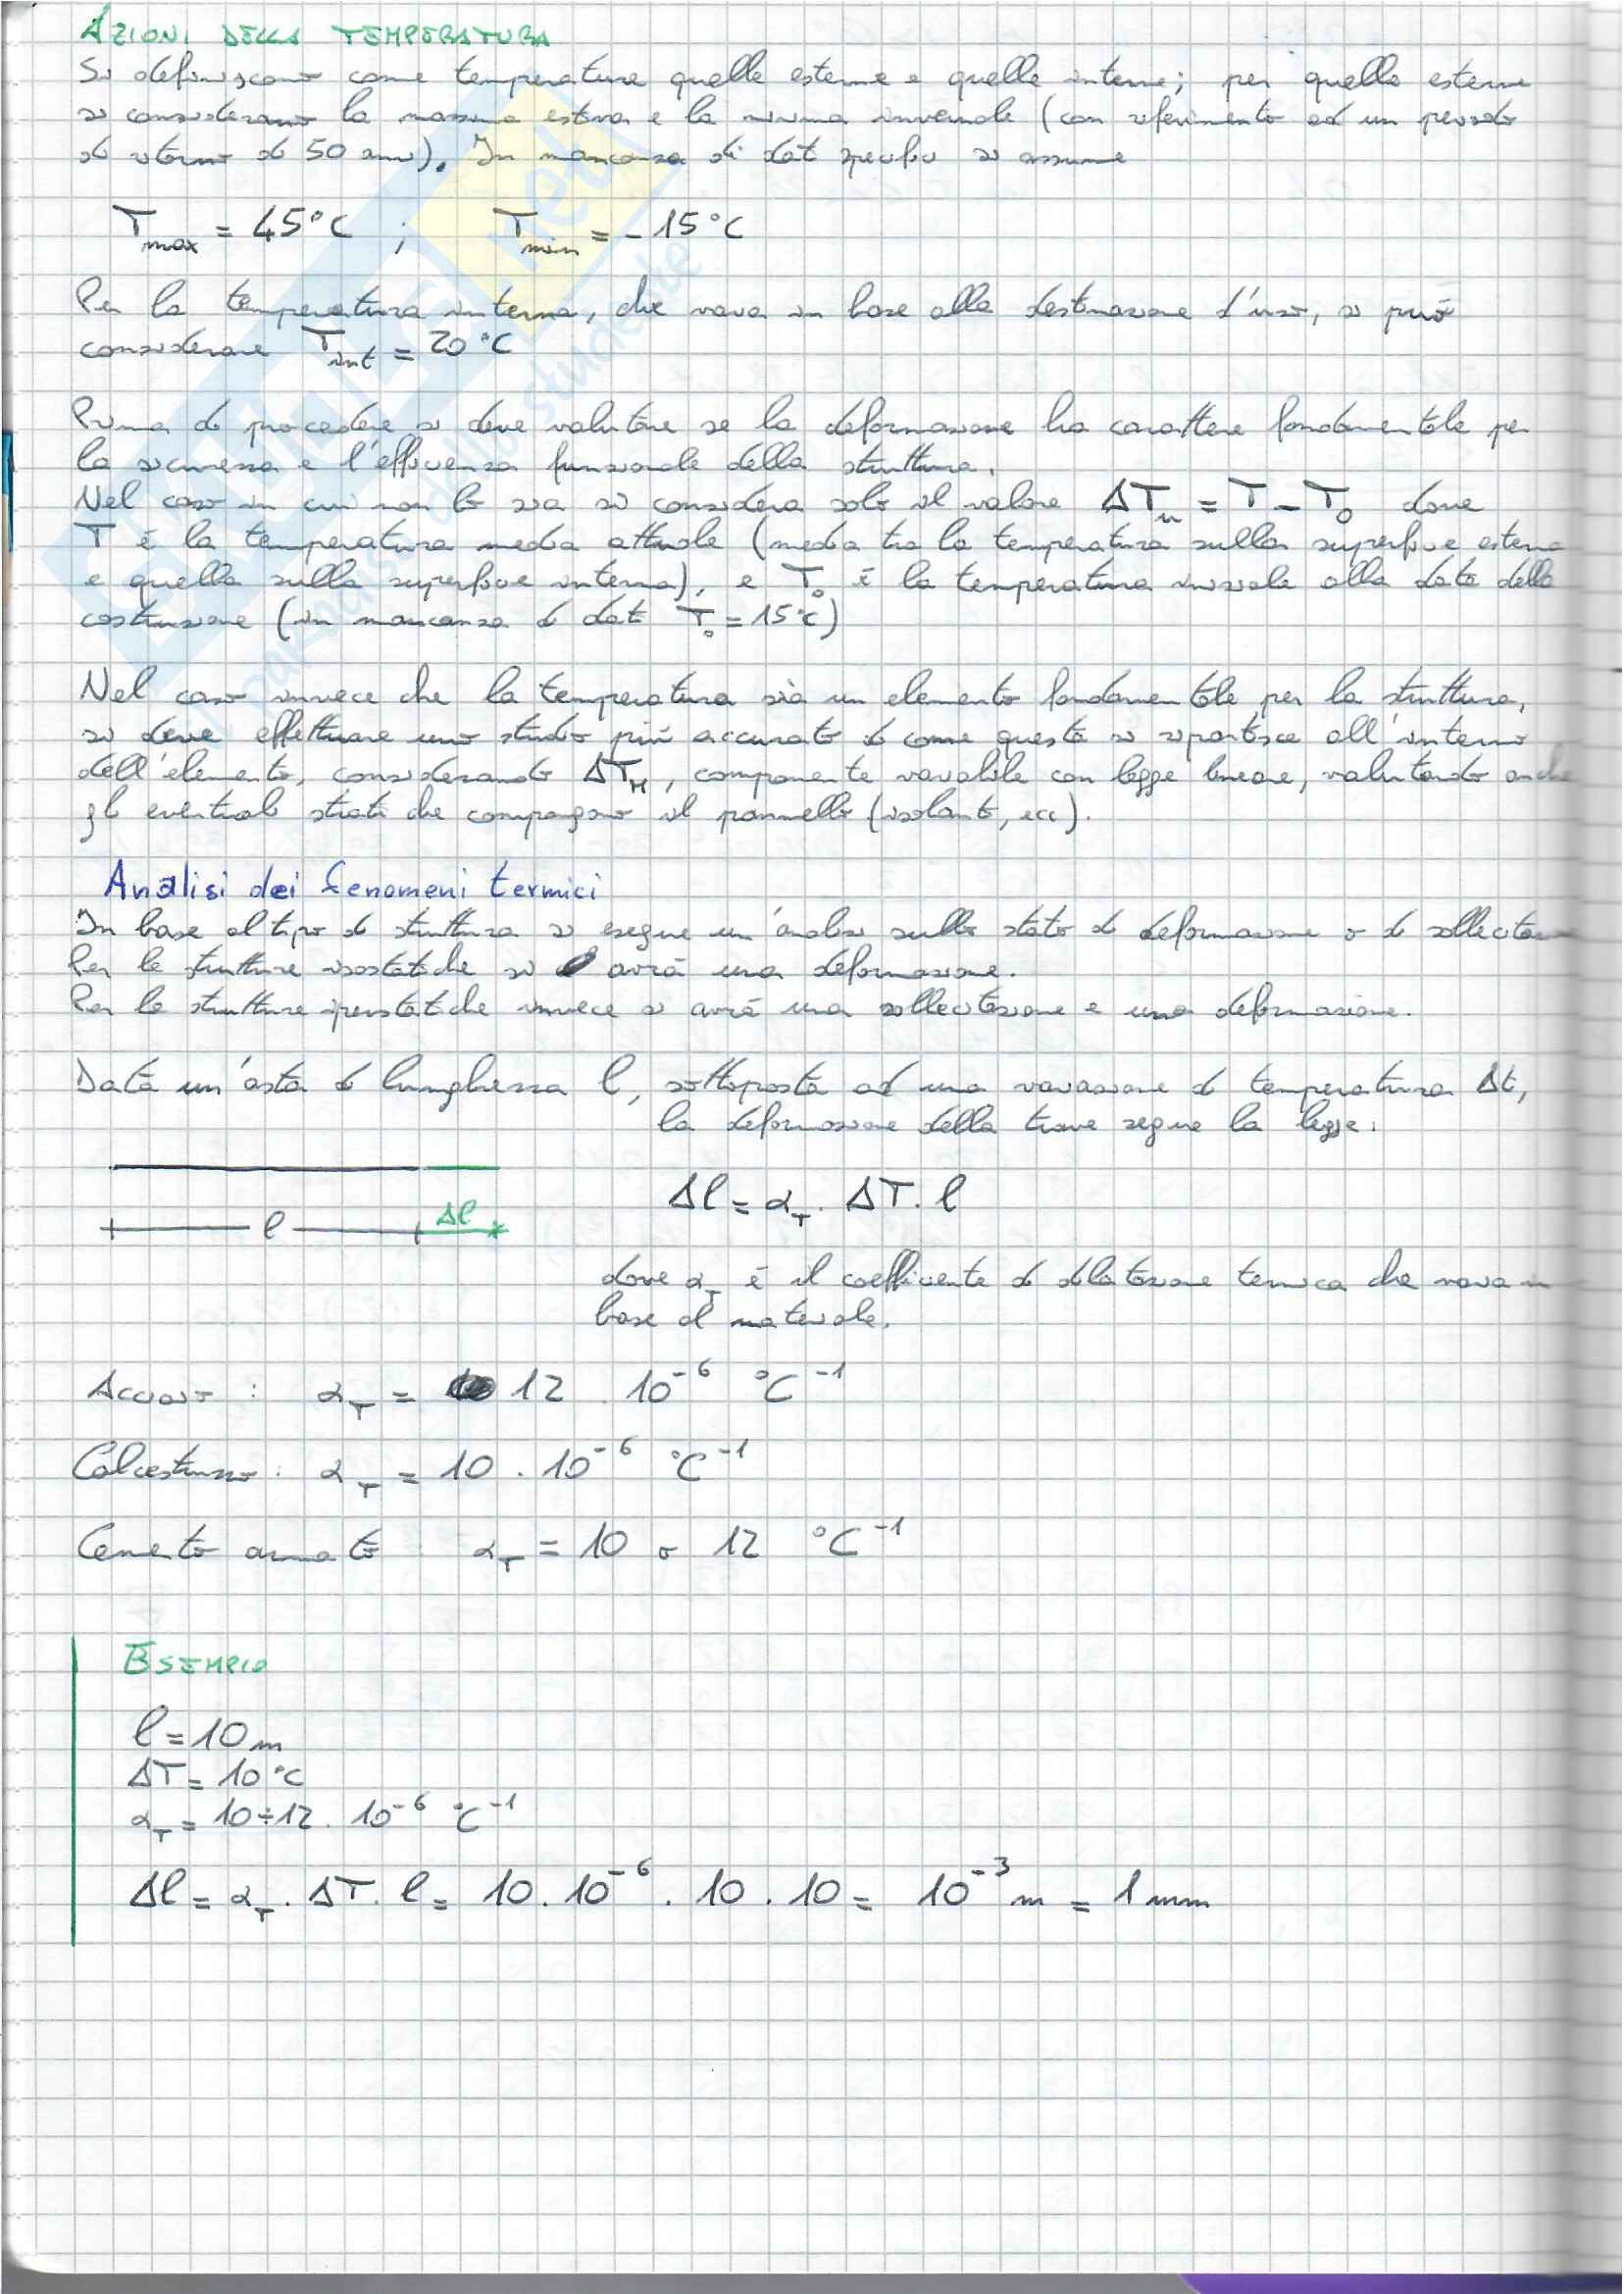 AZIONI DELLA TEMPERATURA
Si definiscono come temperature quelle esterne e quelle interne; per quelle esterne
si considerano la massima estiva e la minima invernale (con riferimento ad un periodo
di ritorno di 50 anni). In mancanza di dati specifici si assume
T max = 45°C ; T min = -15°C
Per la temperatura interna, che varia in base alla destinazione d'uso, si può
considerare T int = 20°C
Prima di procedere si deve valutare se la deformazione ha carattere fondamentale per
la sicurezza e l'efficienza funzionale della struttura.
Nel caso in cui non lo sia si considera solo il valore ΔTu = T - T0 dove
T è la temperatura media attuale (media tra la temperatura sulla superficie esterna
e quella sulla superficie interna), e T0 è la temperatura iniziale alla data della
costruzione (in mancanza di dati T0 = 15°C)
Nel caso invece che la temperatura sia un elemento fondamentale per la struttura,
si deve effettuare uno studio più accurato di come questa si ripartisce all'interno
dell'elemento, considerando ΔTM, componente variabile con legge lineare, valutando anche
gli eventuali strati che compongono il pannello (isolante, ecc).
Analisi dei fenomeni termici
In base al tipo di struttura si esegue un'analisi sullo stato di deformazione o di sollecitazione
Per le strutture isostatiche si avrà una deformazione.
Per le strutture iperstatiche invece si avrà una sollecitazione e una deformazione.
Data un'asta di lunghezza l, sottoposta ad una variazione di temperatura Δt,
la deformazione della trave segue la legge:
l Δl
Δl = αT · ΔT · l
dove αT è il coefficiente di dilatazione termica che varia in
base al materiale.
Acciaio : αT = 12 · 10⁻⁶ °C⁻¹
Calcestruzzo : αT = 10 · 10⁻⁶ °C⁻¹
Cemento armato : αT = 10 o 12 °C⁻¹
ESEMPIO
l = 10 m
ΔT = 10°C
αT = 10÷12 · 10⁻⁶ °C⁻¹
Δl = αT · ΔT · l = 10 · 10⁻⁶ · 10 · 10 = 10⁻³ m = 1 mm